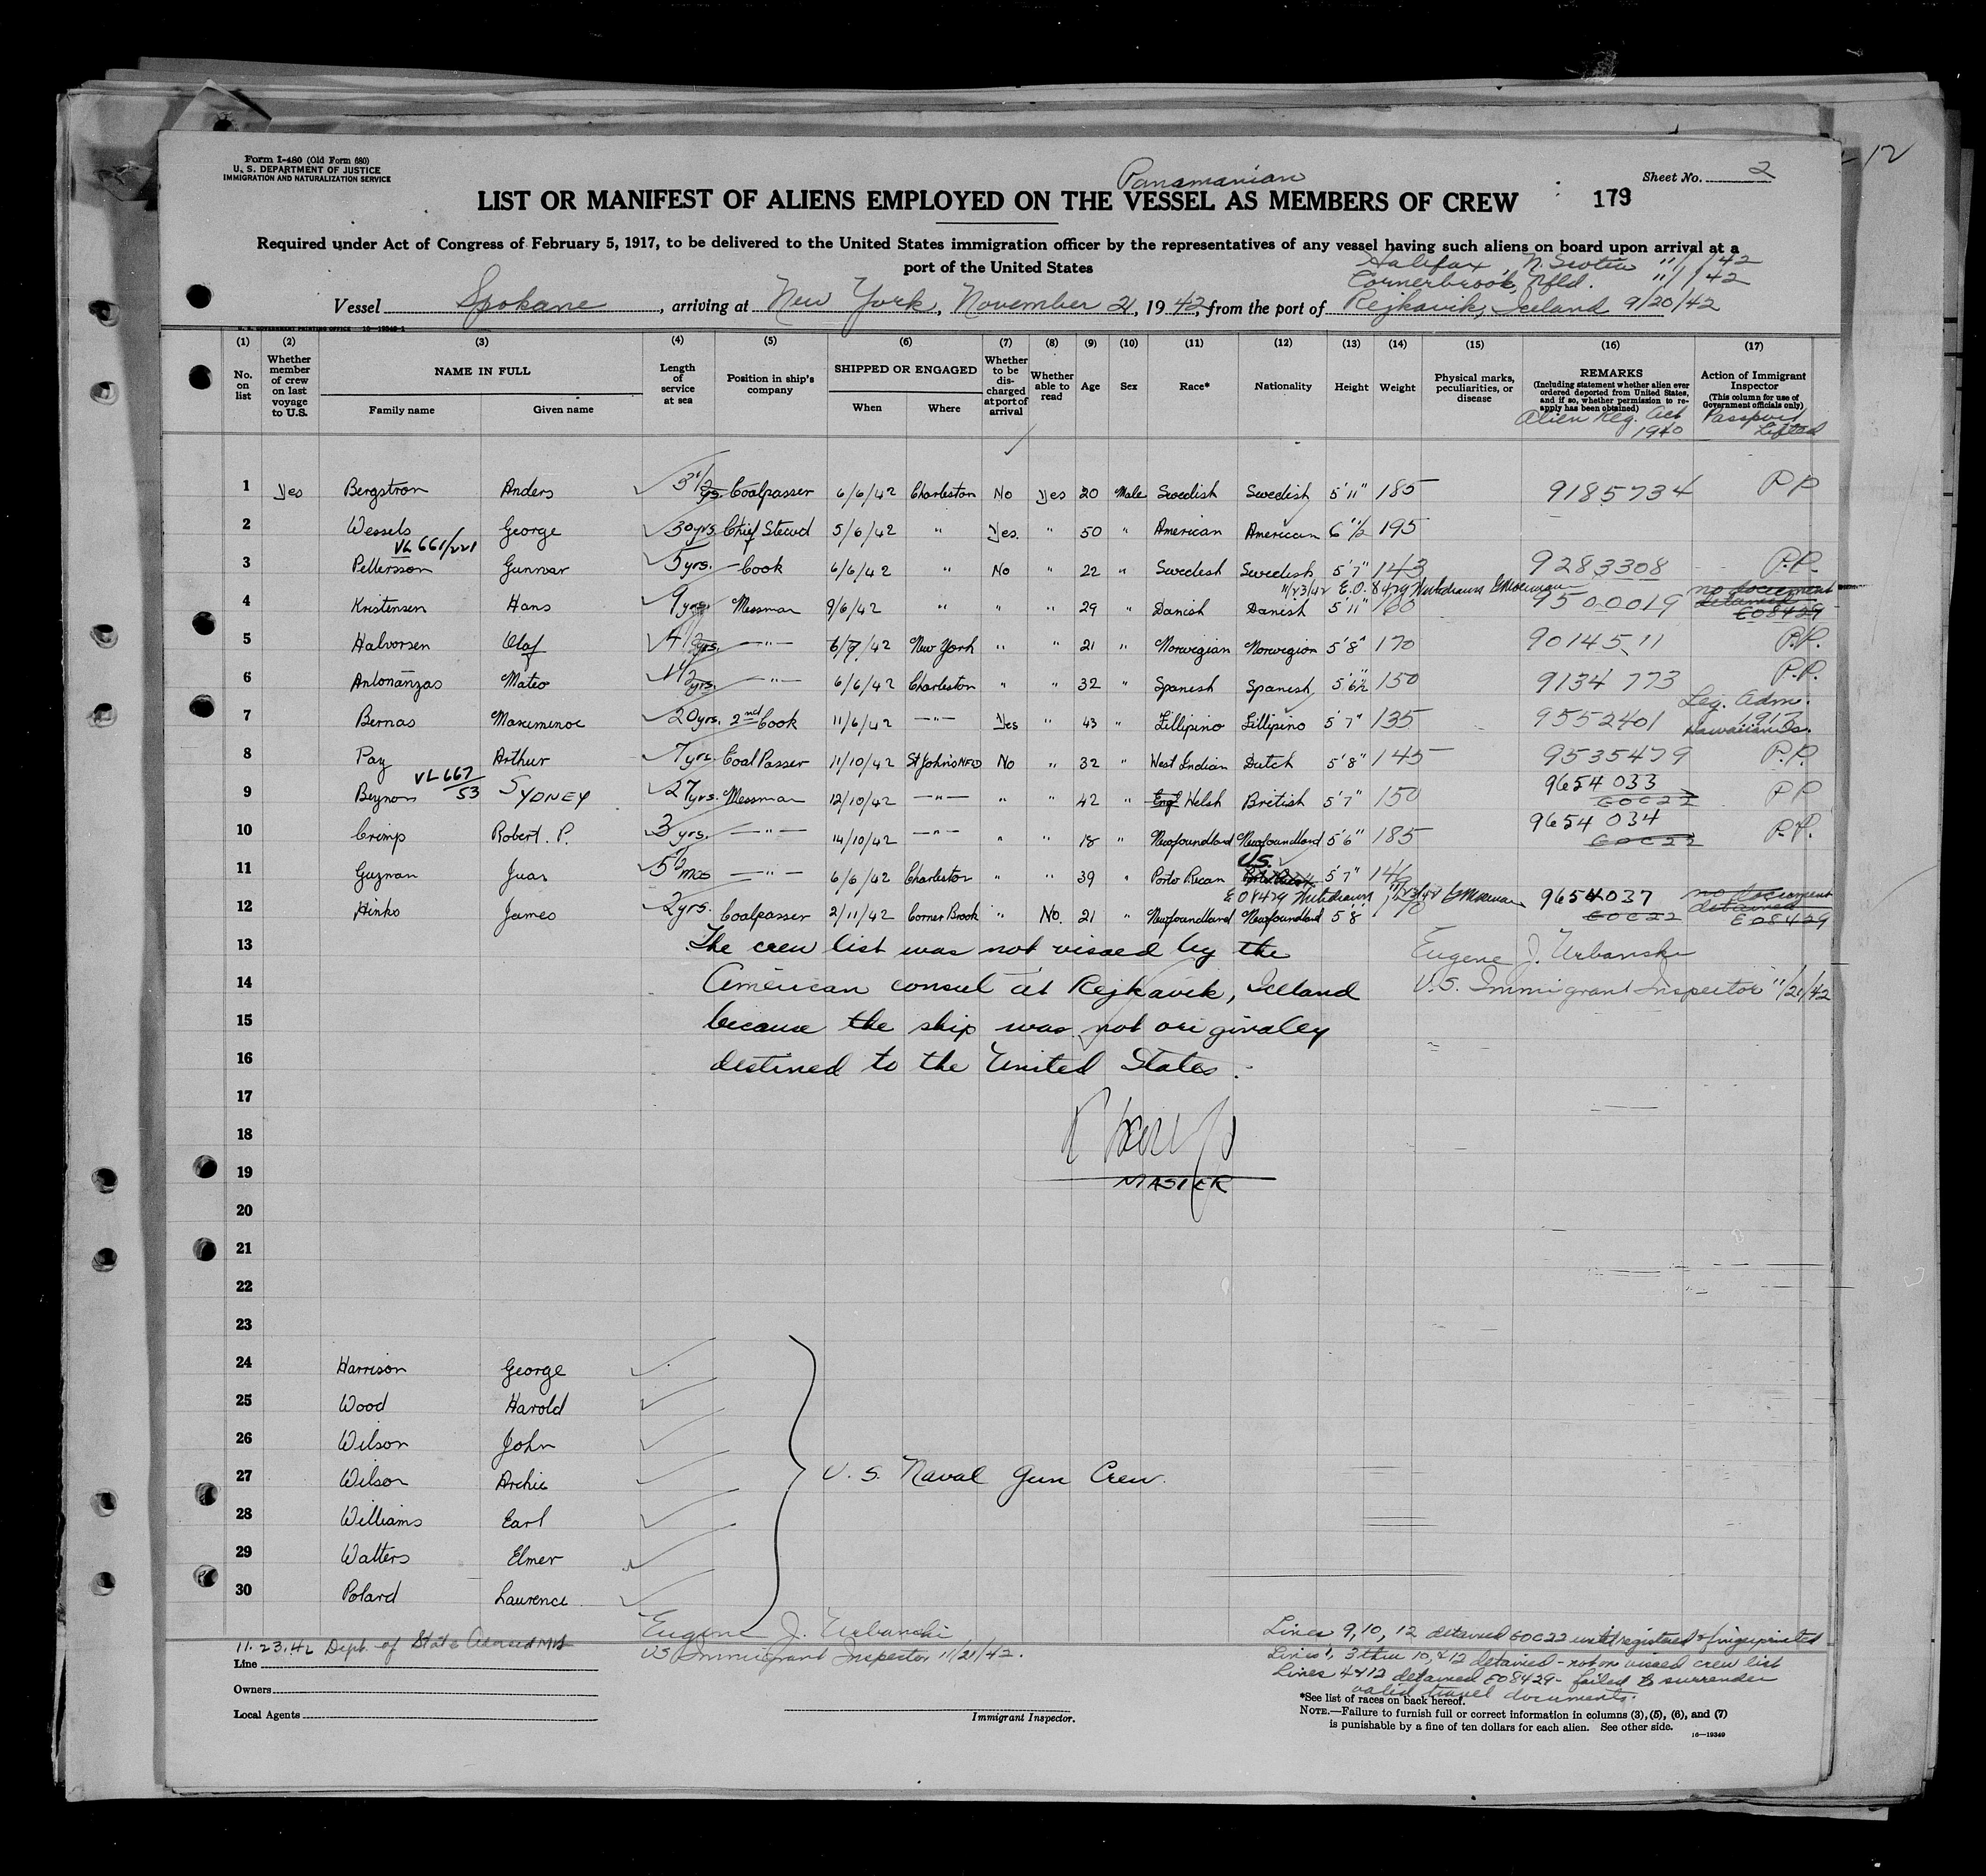 Form I-480 (Old Form 680)
U. S. DEPARTMENT OF JUSTICE
IMMIGRATION AND NATURALIZATION SERVICE
Sheet No. 2
Panamanian
LIST OR MANIFEST OF ALIENS EMPLOYED ON THE VESSEL AS MEMBERS OF CREW 179
Required under Act of Congress of February 5, 1917, to be delivered to the United States immigration officer by the representatives of any vessel having such aliens on board upon arrival at a
port of the United States
Halifax, N. Scotia 11/1/42
Cornerbrook, Nfld. 11/1/42
Vessel Spokane, arriving at New York, November 21, 1942, from the port of Rejkavik, Iceland 9/20/42
(1) (2) (3) (4) (5) (6) (7) (8) (9) (10) (11) (12) (13) (14) (15) (16) (17)
No. on list
Whether member of crew on last voyage to U.S.
NAME IN FULL
Family name Given name
Length of service at sea
Position in ship's company
SHIPPED OR ENGAGED
When Where
Whether to be discharged at port of arrival
Whether able to read
Age
Sex
Race*
Nationality
Height
Weight
Physical marks, peculiarities, or disease
REMARKS
(Including statement whether alien ever ordered deported from United States, and if so, whether permission to reapply has been obtained)
Alien Reg. Act 1940
Action of Immigrant Inspector
(This column for use of Government officials only)
Passport Lifted
1 Yes Bergstron Anders 3 1/2 yrs. Coalpasser 6/6/42 Charleston No Yes 20 Male Swedish Swedish 5'11" 185 9185734 P P
2 Wessels George 30 yrs. Chief Stewd 5/6/42 " Yes. " 50 " American American 6 1/2" 195
VL 661/221
3 Pettersson Gunnar 5 yrs. Cook 6/6/42 " No " 22 " Swedesh Swedish 5'7" 143 9283308 P.P.
11/23/42 E.O. 8429 Withdrawn
4 Kristensen Hans 9 yrs. Messman 9/6/42 " " " 29 " Danish Danish 5'11" 9500019 no document detained EO8429
5 Halvorsen Olaf 4 1/2 yrs. —"— 6/7/42 New York " " 21 " Norwegian Norwegian 5'8" 170 9014511 P.P.
6 Antonanzas Mateo 1 1/2 yrs. —"— 6/6/42 Charleston " " 32 " Spanesh Spanesh 5'6½" 150 9134 773 P.P.
7 Bernas Maxemenoe 20 yrs. 2nd Cook 11/6/42 —"— Yes " 43 " Fillipino Fillipino 5'7" 135 9552401 Leg. Adm. 1917 Hawaiian Is.
8 Pay Arthur 7 yrs. Coal Passer 11/10/42 St Johns NFD No " 32 " West Indian Dutch 5'8" 145 9535479 P.P.
VL 667/53
9 Beynon SYDNEY 27 yrs. Messman 12/10/42 —"— " " 42 " Eng Welsh British 5'7" 150 9654 033 EOC22 P P
10 Crimp Robert. P. 3 yrs. —"— 14/10/42 —"— " " 18 " Newfoundland Newfoundland 5'6" 185 9654 034 EOC22 P.P.
11 Guzman Juan 5 1/2 mos —"— 6/6/42 Charleston " " 39 " Porto Recan U.S. 5'7"
EO8429 Withdrawn 11/23/42
12 Hinks James 2 yrs. Coalpasser 2/11/42 Corner Brook " No. 21 " Newfoundland Newfoundland 5 8 170 9654037 EOC22 no document detained EO8429
13 The crew list was not visaed by the
14 American consul at Rejkavik, Iceland
15 because the ship was not originaley
16 destined to the United States.
Eugene J. Urbanski
U.S. Immigrant Inspector 11/21/42
17
18
19 MASTER
20
21
22
23
24 Harrison George
25 Wood Harold
26 Wilson John
27 Wilson Archie U. S. Naval Gun Crew.
28 Williams Earl
29 Walters Elmer
30 Polard Laurence
Eugene J. Urbanski
US Immigrant Inspector 11/21/42.
11.23.42 Dept. of State
Line
Owners
Local Agents
Immigrant Inspector.
Lines 9, 10, 12 detained EOC22 until registered & fingerprinted
Lines 1, 3 thru 10, & 12 detained - not on visaed crew list
Lines 4 & 12 detained EO8429 - failed to surrender
valid travel documents.
*See list of races on back hereof.
NOTE.—Failure to furnish full or correct information in columns (3), (5), (6), and (7)
is punishable by a fine of ten dollars for each alien. See other side.
16—19349